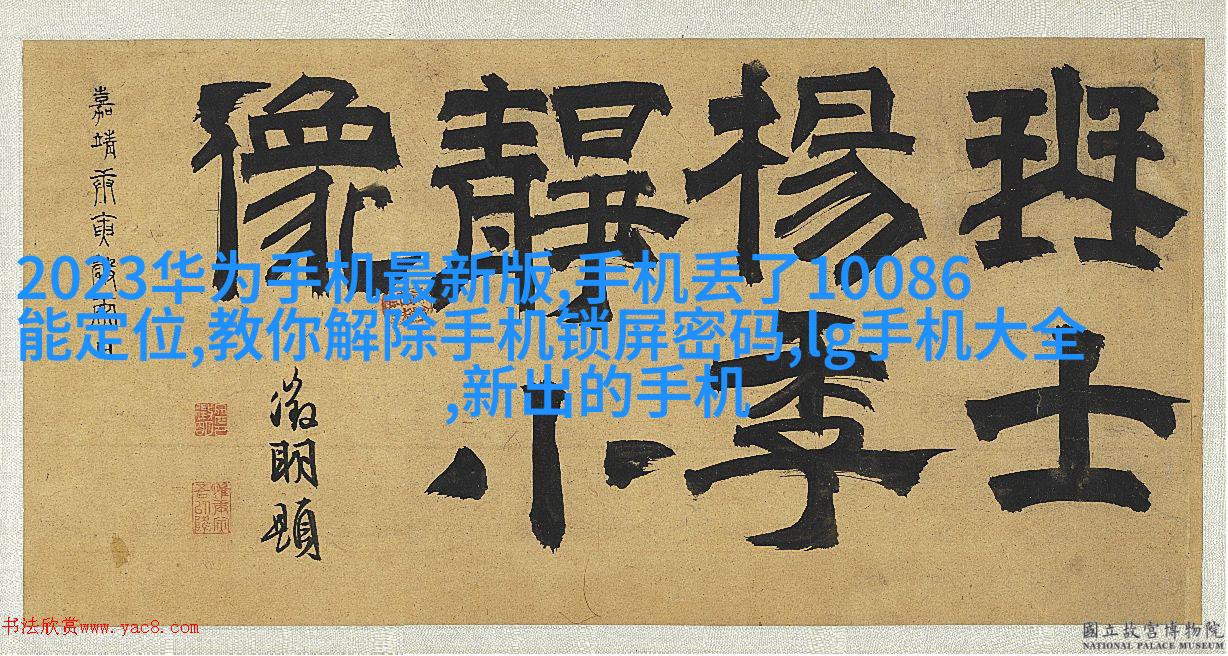 2023华为手机最新版,手机丢了10086
能定位,教你解除手机锁屏密码,lg手机大全
,新出的手机
珡士
楊季
靜小
像
嘉靖庚寅
徵明題
书法欣赏www.yac8.com
國立故宮博物院
NATIONAL PALACE MUSEUM